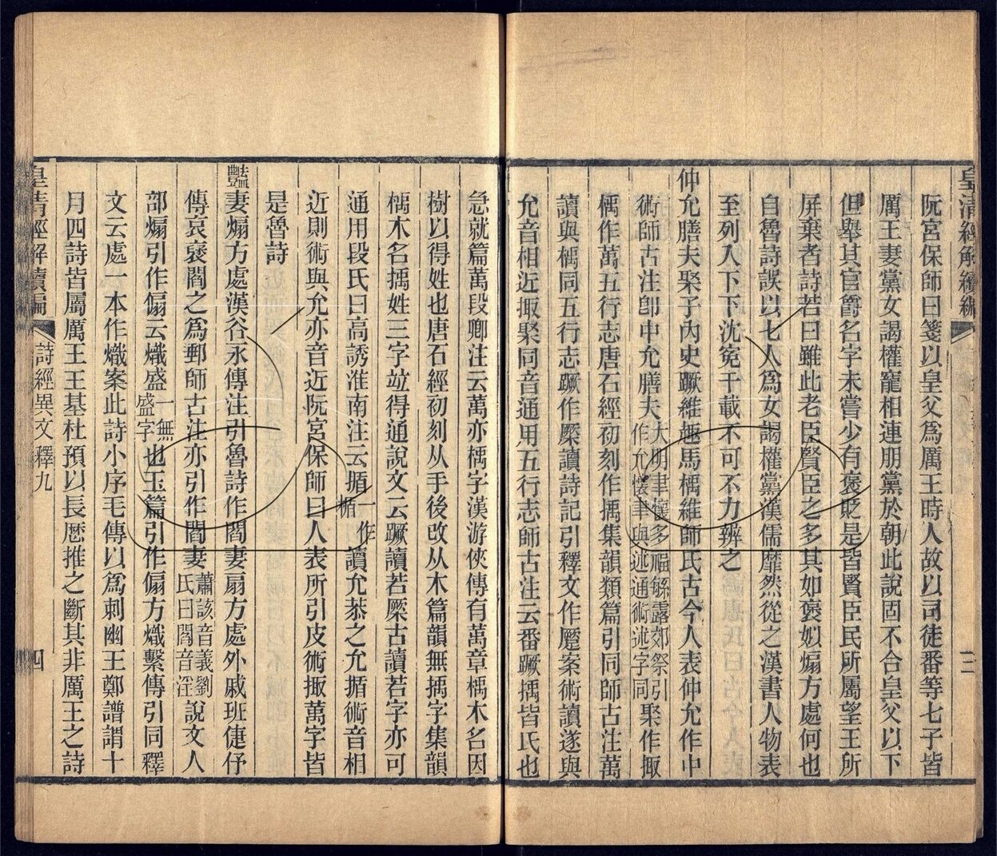 皇清經解續編
三
阮宮保師曰箋以皇父爲厲王時人故以司徒番等七子皆
厲王妻黨女謁權寵相連朋黨於朝此說固不合皇父以下
但舉其官爵名字未嘗少有褒貶是皆賢臣民所屬望王所
屏棄者詩若曰雖此老臣賢臣之多其如褒姒煽方處何也
自魯詩誤以七人爲女謁權黨漢儒靡然從之漢書人物表
至列入下下沈冤千載不可不力辨之
仲允膳夫聚子內史蹶維趣馬楀維師氏古今人表仲允作中
術師古注卽中允膳夫大明聿懷多福繇露郊祭引作允懷聿與述通術述字同聚作掫
楀作萬五行志唐石經初刻作㩻集韻類篇引同師古注萬
讀與楀同五行志蹶作橜讀詩記引釋文作蹷案術讀遂與
允音相近掫聚同音通用五行志師古注云番蹶㩻皆氏也
急就篇萬段卿注云萬亦楀字漢游俠傳有萬章楀木名因
樹以得姓也唐石經初刻从手後改从木篇韻無㩻字集韻
楀木名㩻姓三字竝得通說文云蹶讀若橜古讀若字亦可
通用段氏曰高誘淮南注云揗一作楯讀允恭之允揗術音相
近則術與允亦音近阮宮保師曰人表所引皮術掫萬字皆
是魯詩
豔妻煽方處漢谷永傳注引魯詩作閻妻扇方處外戚班倢伃
傳哀褒閻之爲郵師古注亦引作閻妻蕭該音義劉氏曰閻音淫說文人
部煽引作傓云熾盛一無盛字也玉篇引作傓方熾繫傳引同釋
文云處一本作熾案此詩小序毛傳以爲刺幽王鄭譜謂十
月四詩皆屬厲王王基杜預以長厤推之斷其非厲王之詩
皇清經解續編
詩經異文釋九
四